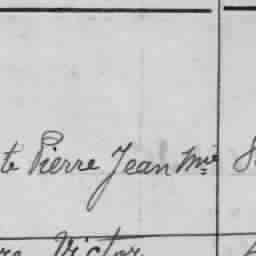 te Pierre Jean Mie
Victor